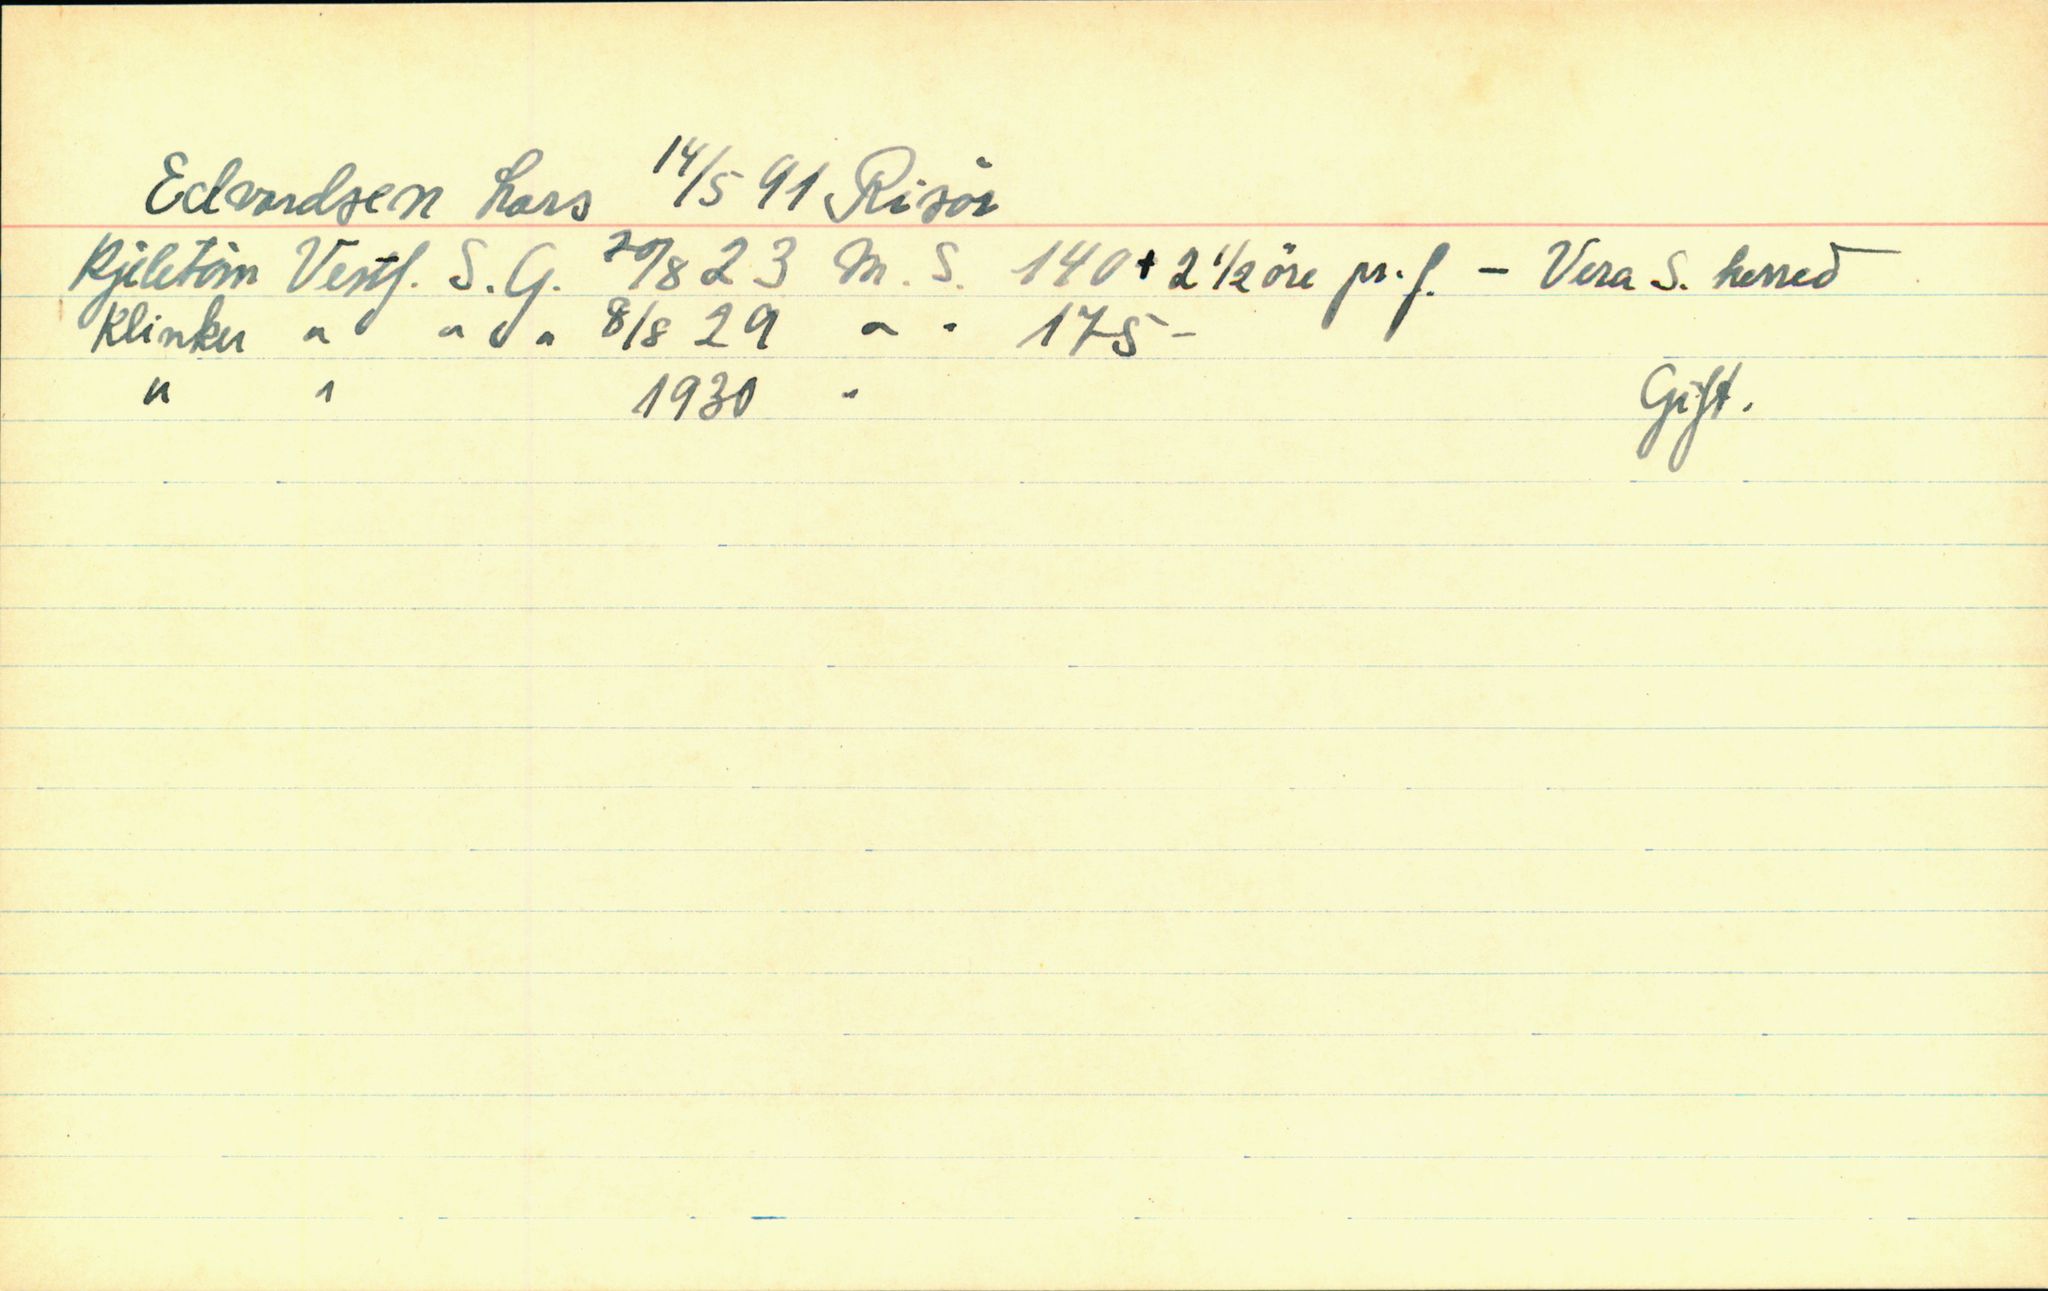 Edvardsen Lars 14/5 91 Risör
Vestf. S. G. 20/8 23 M. S. 140 + 2 1/2 öre pr. f. - Vera S. herred
Klinker " " " 8/8 29 " " 175 -
" " 1930 " Gift.